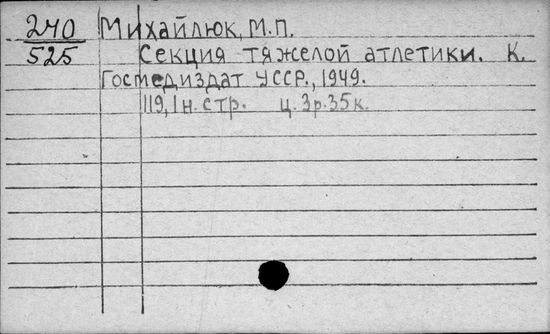 240 Михайлюк, М.П.
525 Секция тяжелой атлетики. К.
Госмедиздат УССР., 1949.
119, 1 н. стр. ц. 3р.35к.